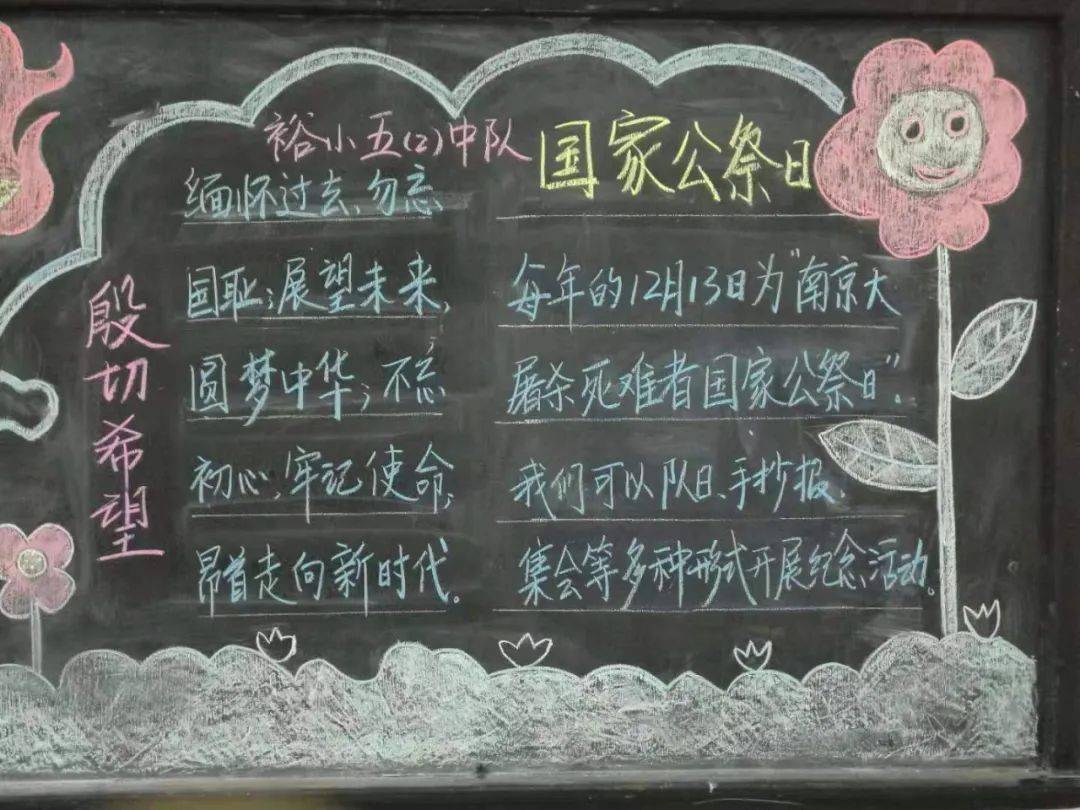 裕小五(2)中队
国家公祭日
殷切希望
缅怀过去、勿忘
国耻;展望未来,
圆梦中华;不忘
初心,牢记使命,
昂首走向新时代.
每年的12月13日为"南京大
屠杀死难者国家公祭日".
我们可以队日、手抄报、
集会等多种形式开展纪念活动。